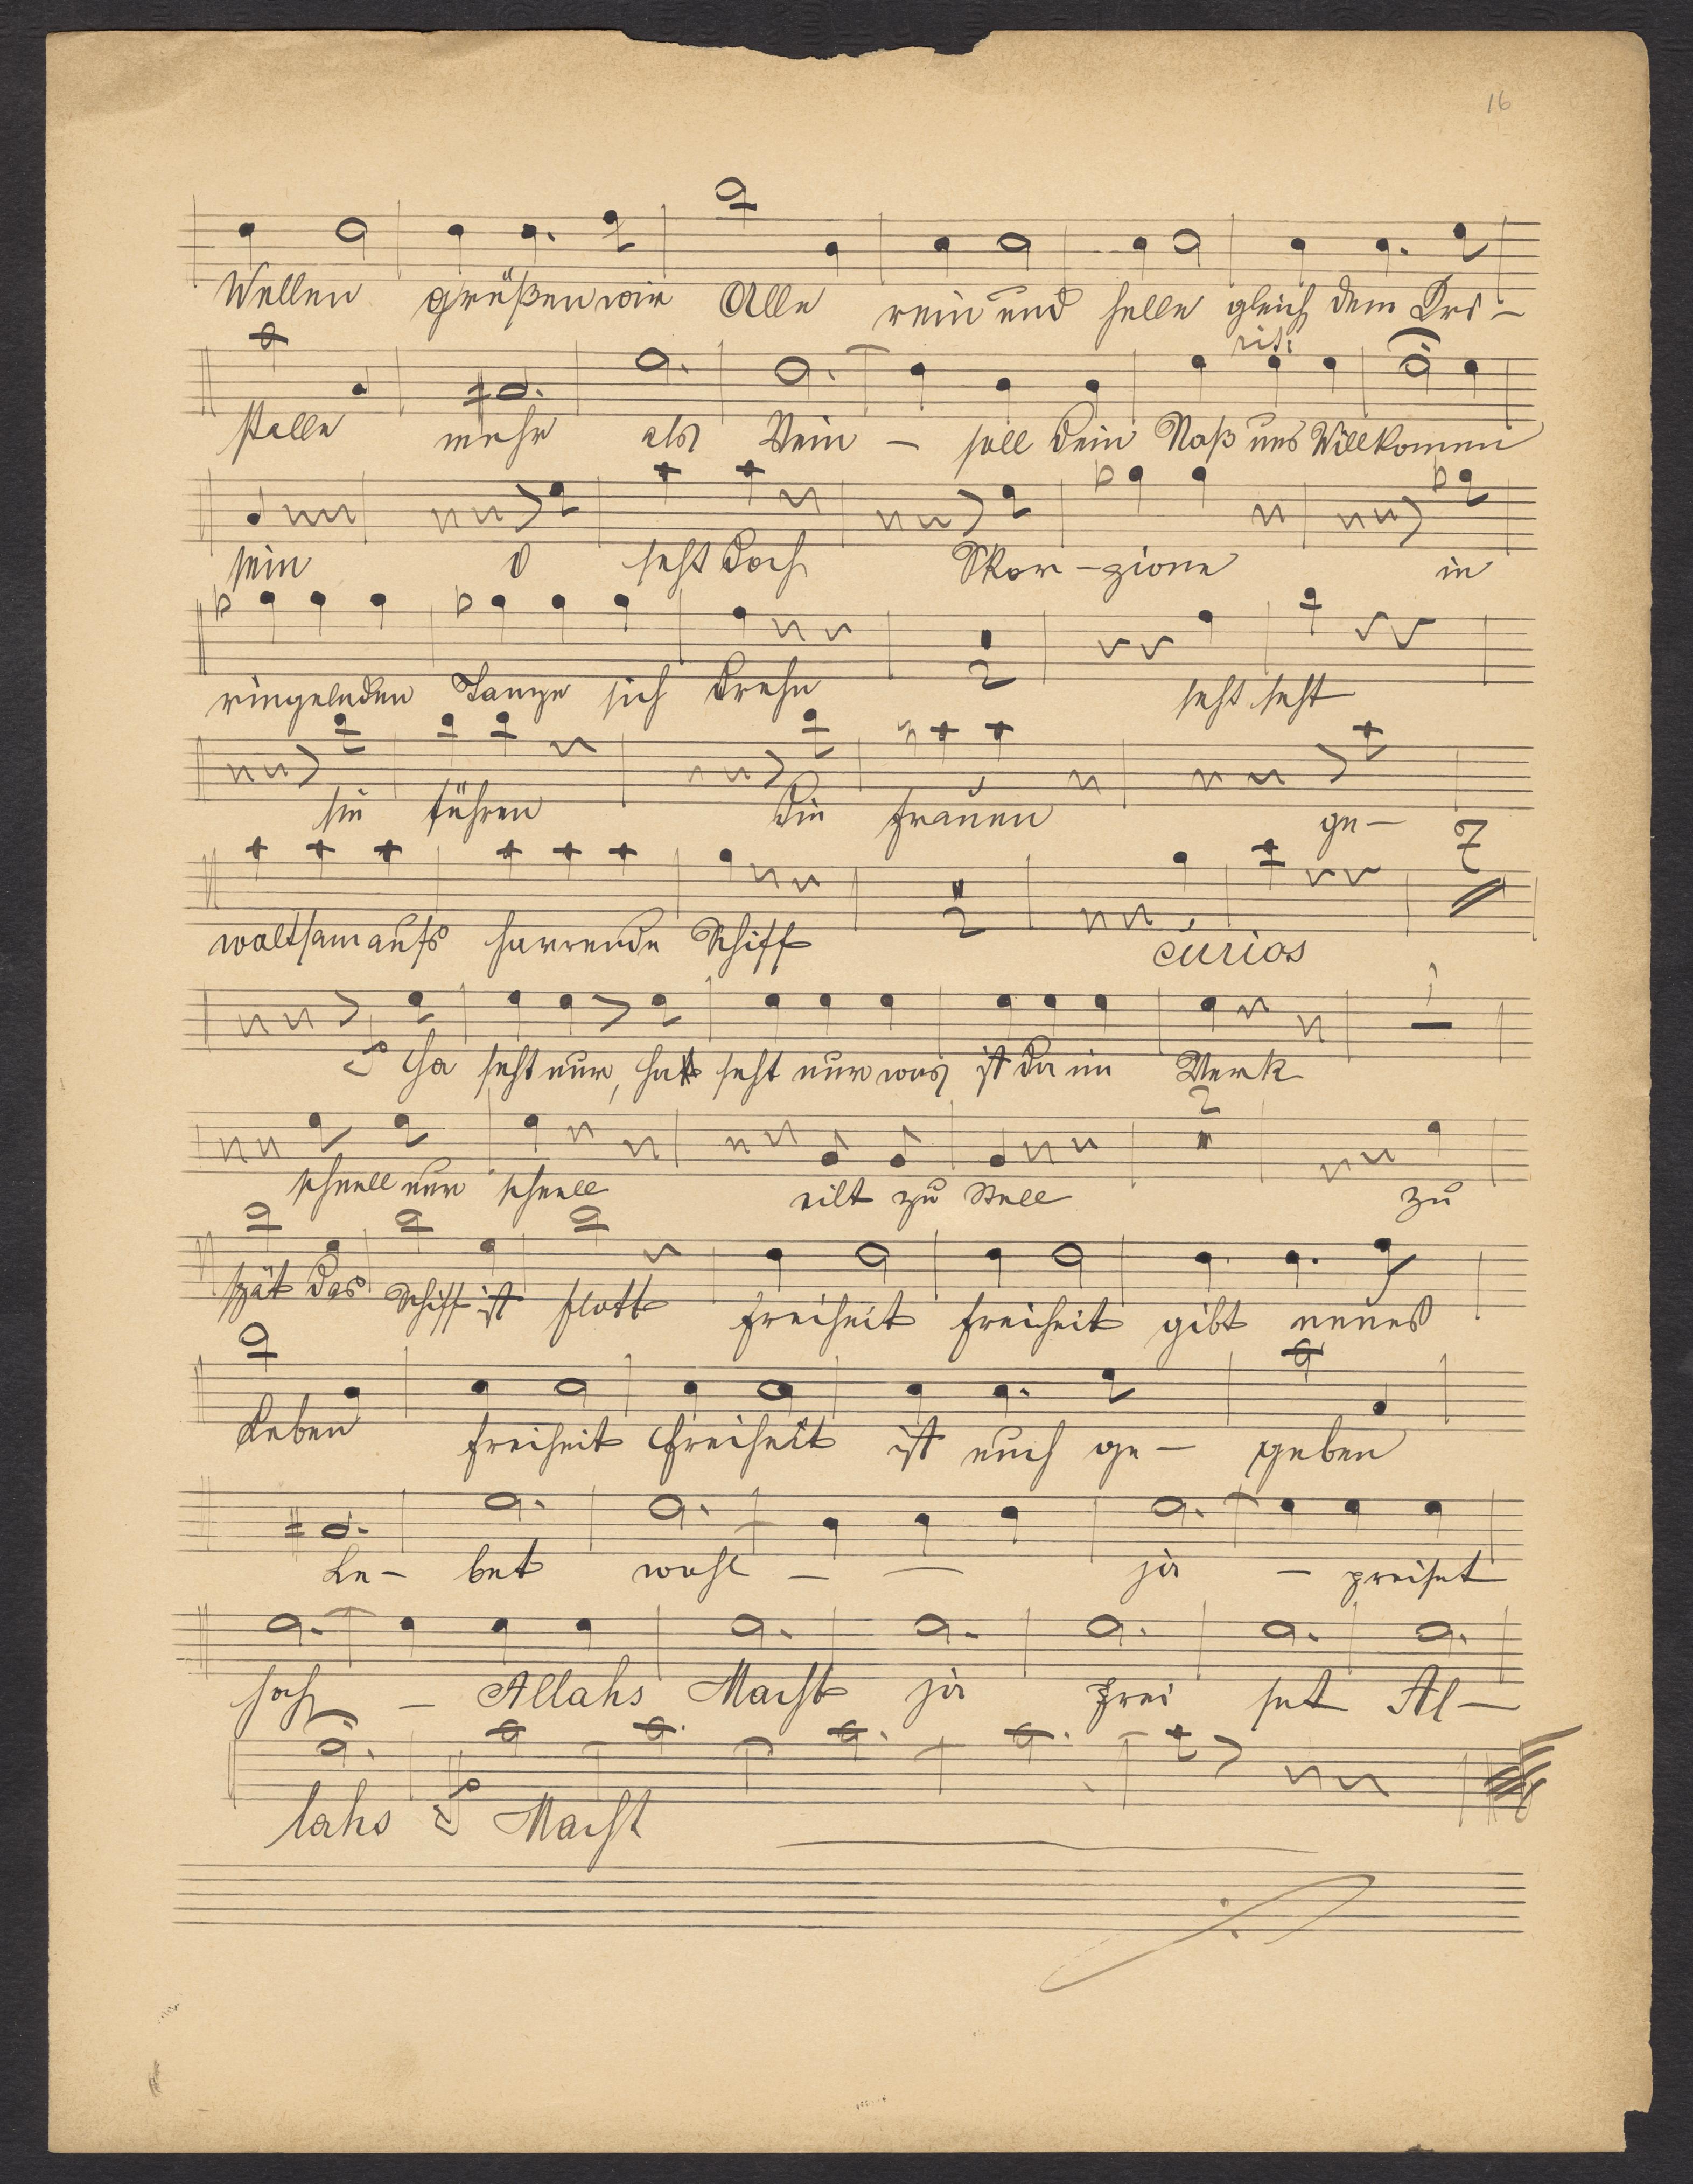 16
Wellen grüßen wir Alle rein und helle gleich dem Kri-
rit:
stalle mehr als Wein – soll dein Naß uns Willkomen
sein O seht doch Skor-zione in
ringelnden Tanze sich drehn seht seht
2
sie führen die Frauen ge-
waltsam aufs harrende Schiff curios
2 7
Ha seht nur, ha seht nur was ist da im Werk
1
schnell nur schnell eilt zu Stell zu
2
spät das Schiff ist flott Freiheit Freiheit gibt neues
Leben Freiheit Freiheit ist euch ge- geben
Le- bet wohl – – ja – preiset
hoch – Allahs Macht ja prei set Al-
lahs Macht